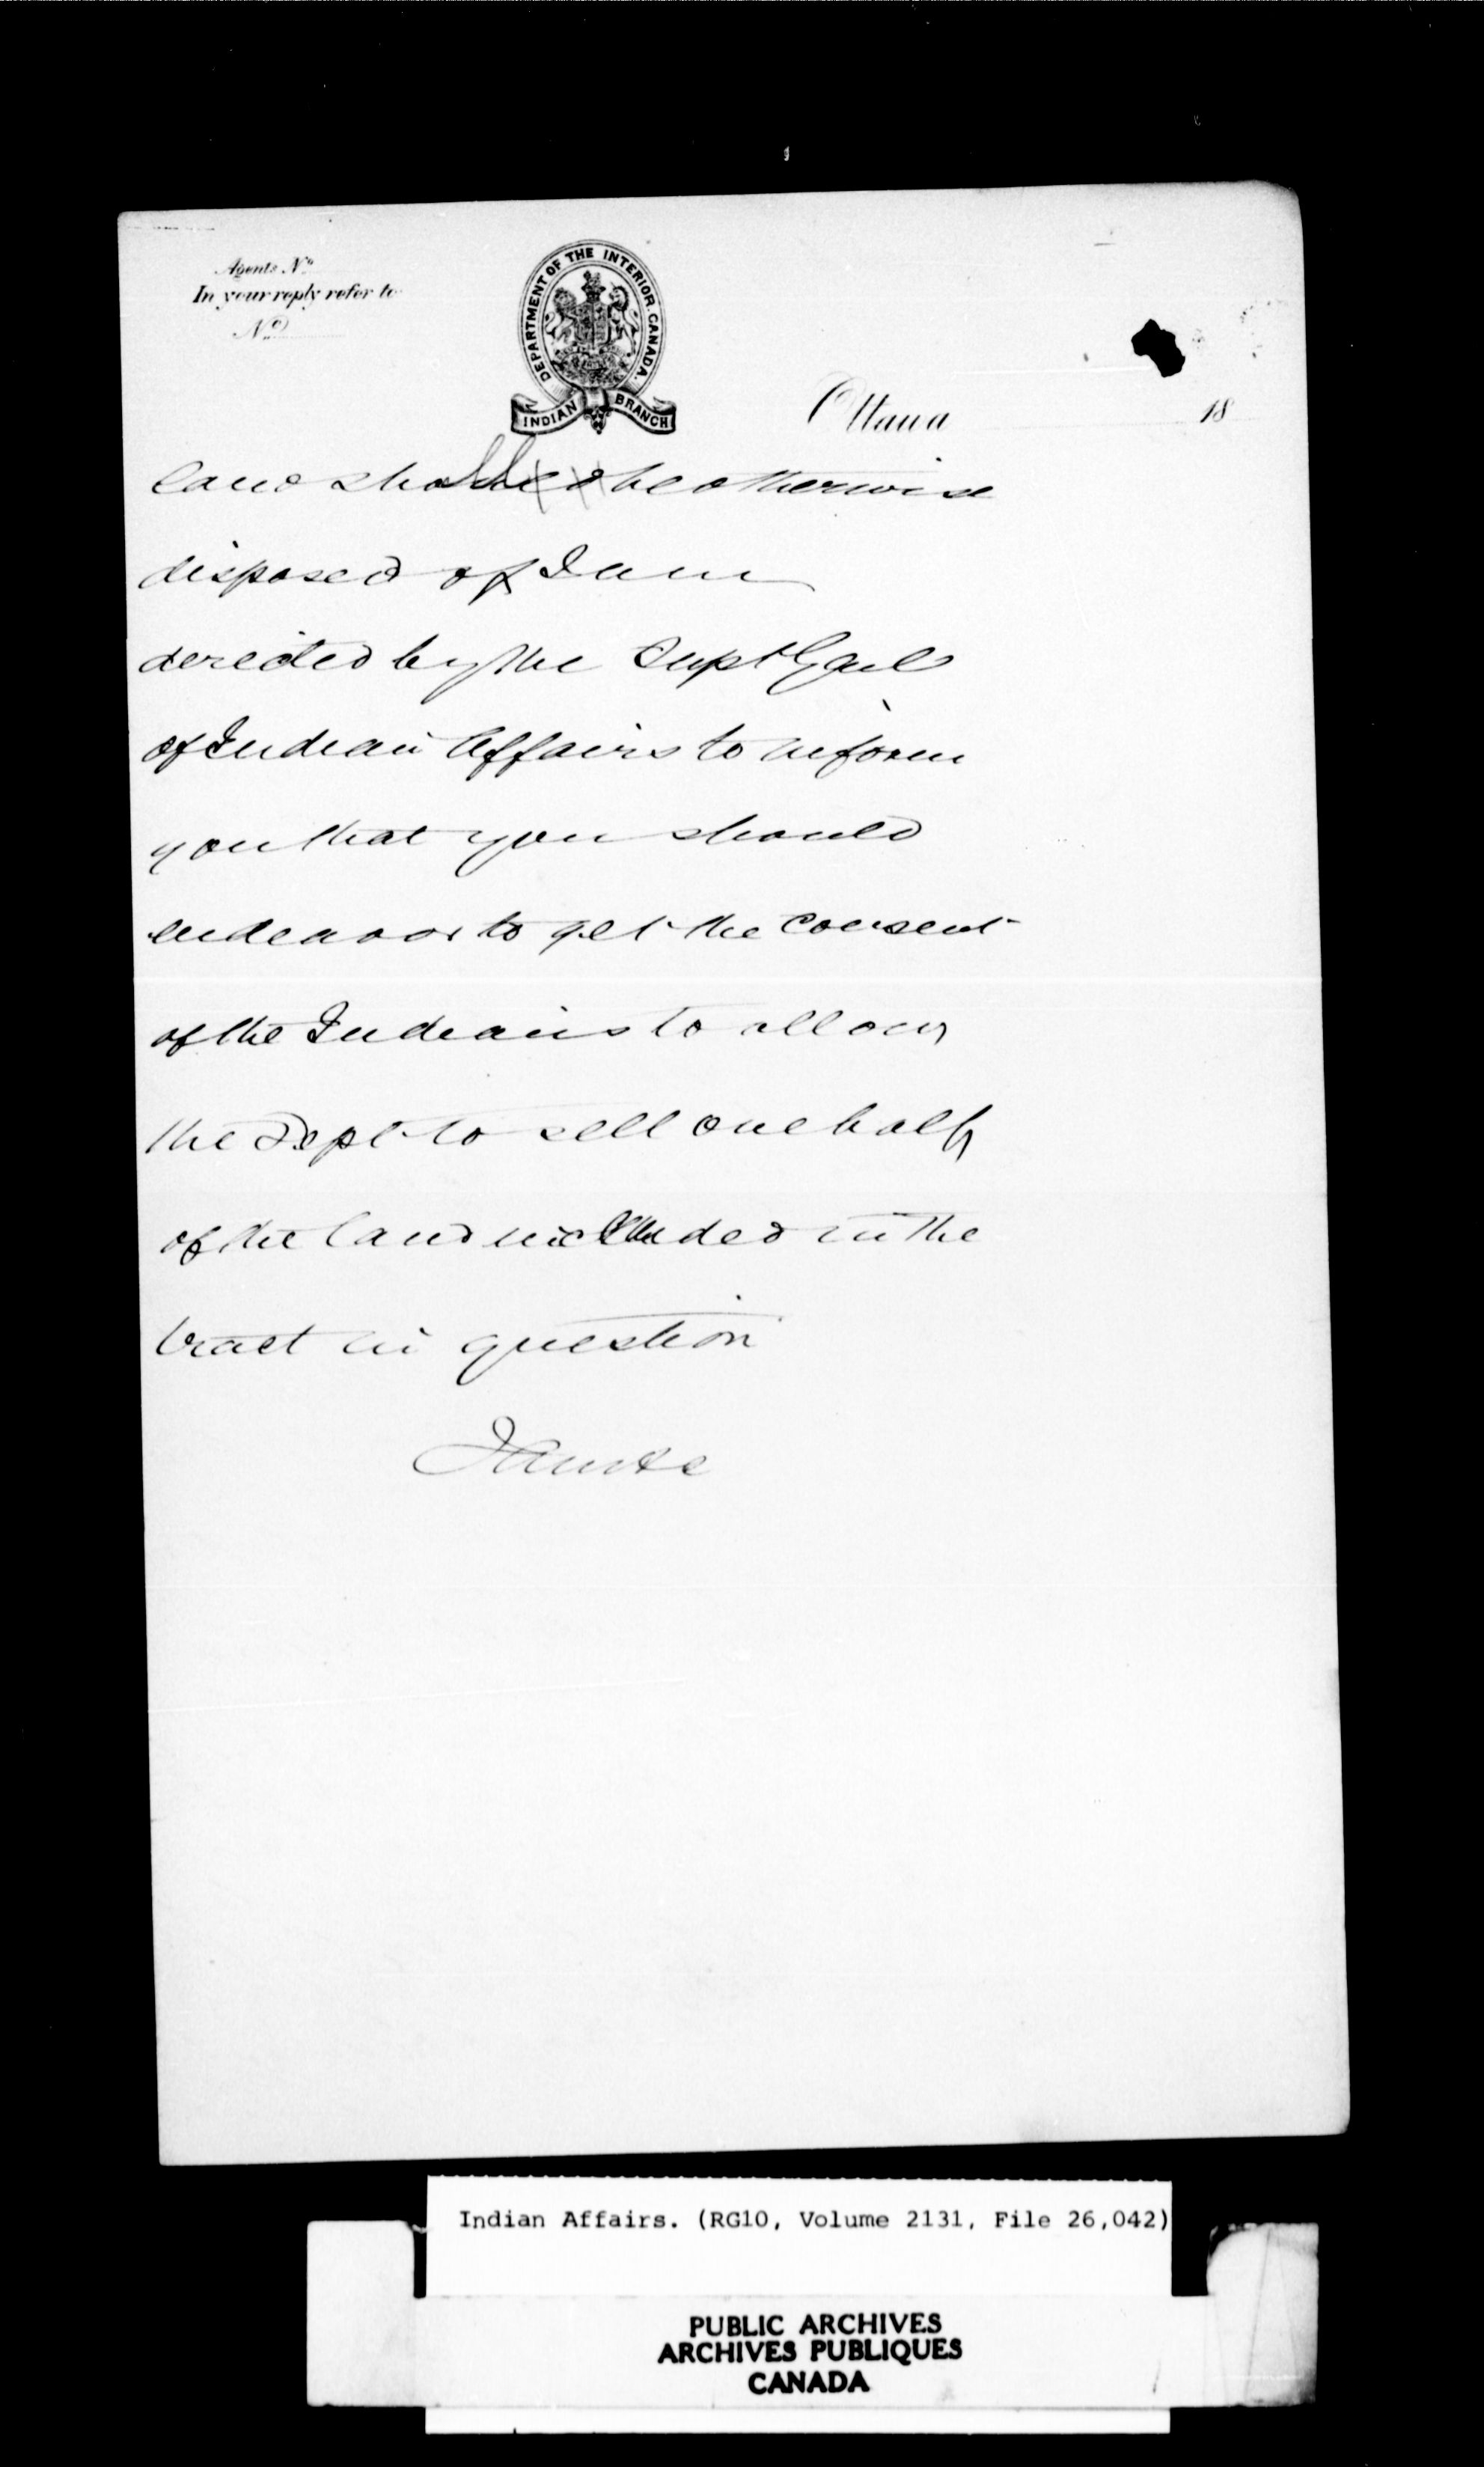 Agents No
In your reply refer to
No
DEPARTMENT OF THE INTERIOR. CANADA.
INDIAN BRANCH
Ottawa 18
land shall be otherwise
disposed of I am
derected by the Supt Genl
of Indian Affairs to inform
you that you should
endeavor to get the consent
of the Indians to allow
the Dept to sell one half
of the land included in the
tract in question
I am &c
Indian Affairs. (RG10, Volume 2131, File 26,042)
PUBLIC ARCHIVES
ARCHIVES PUBLIQUES
CANADA